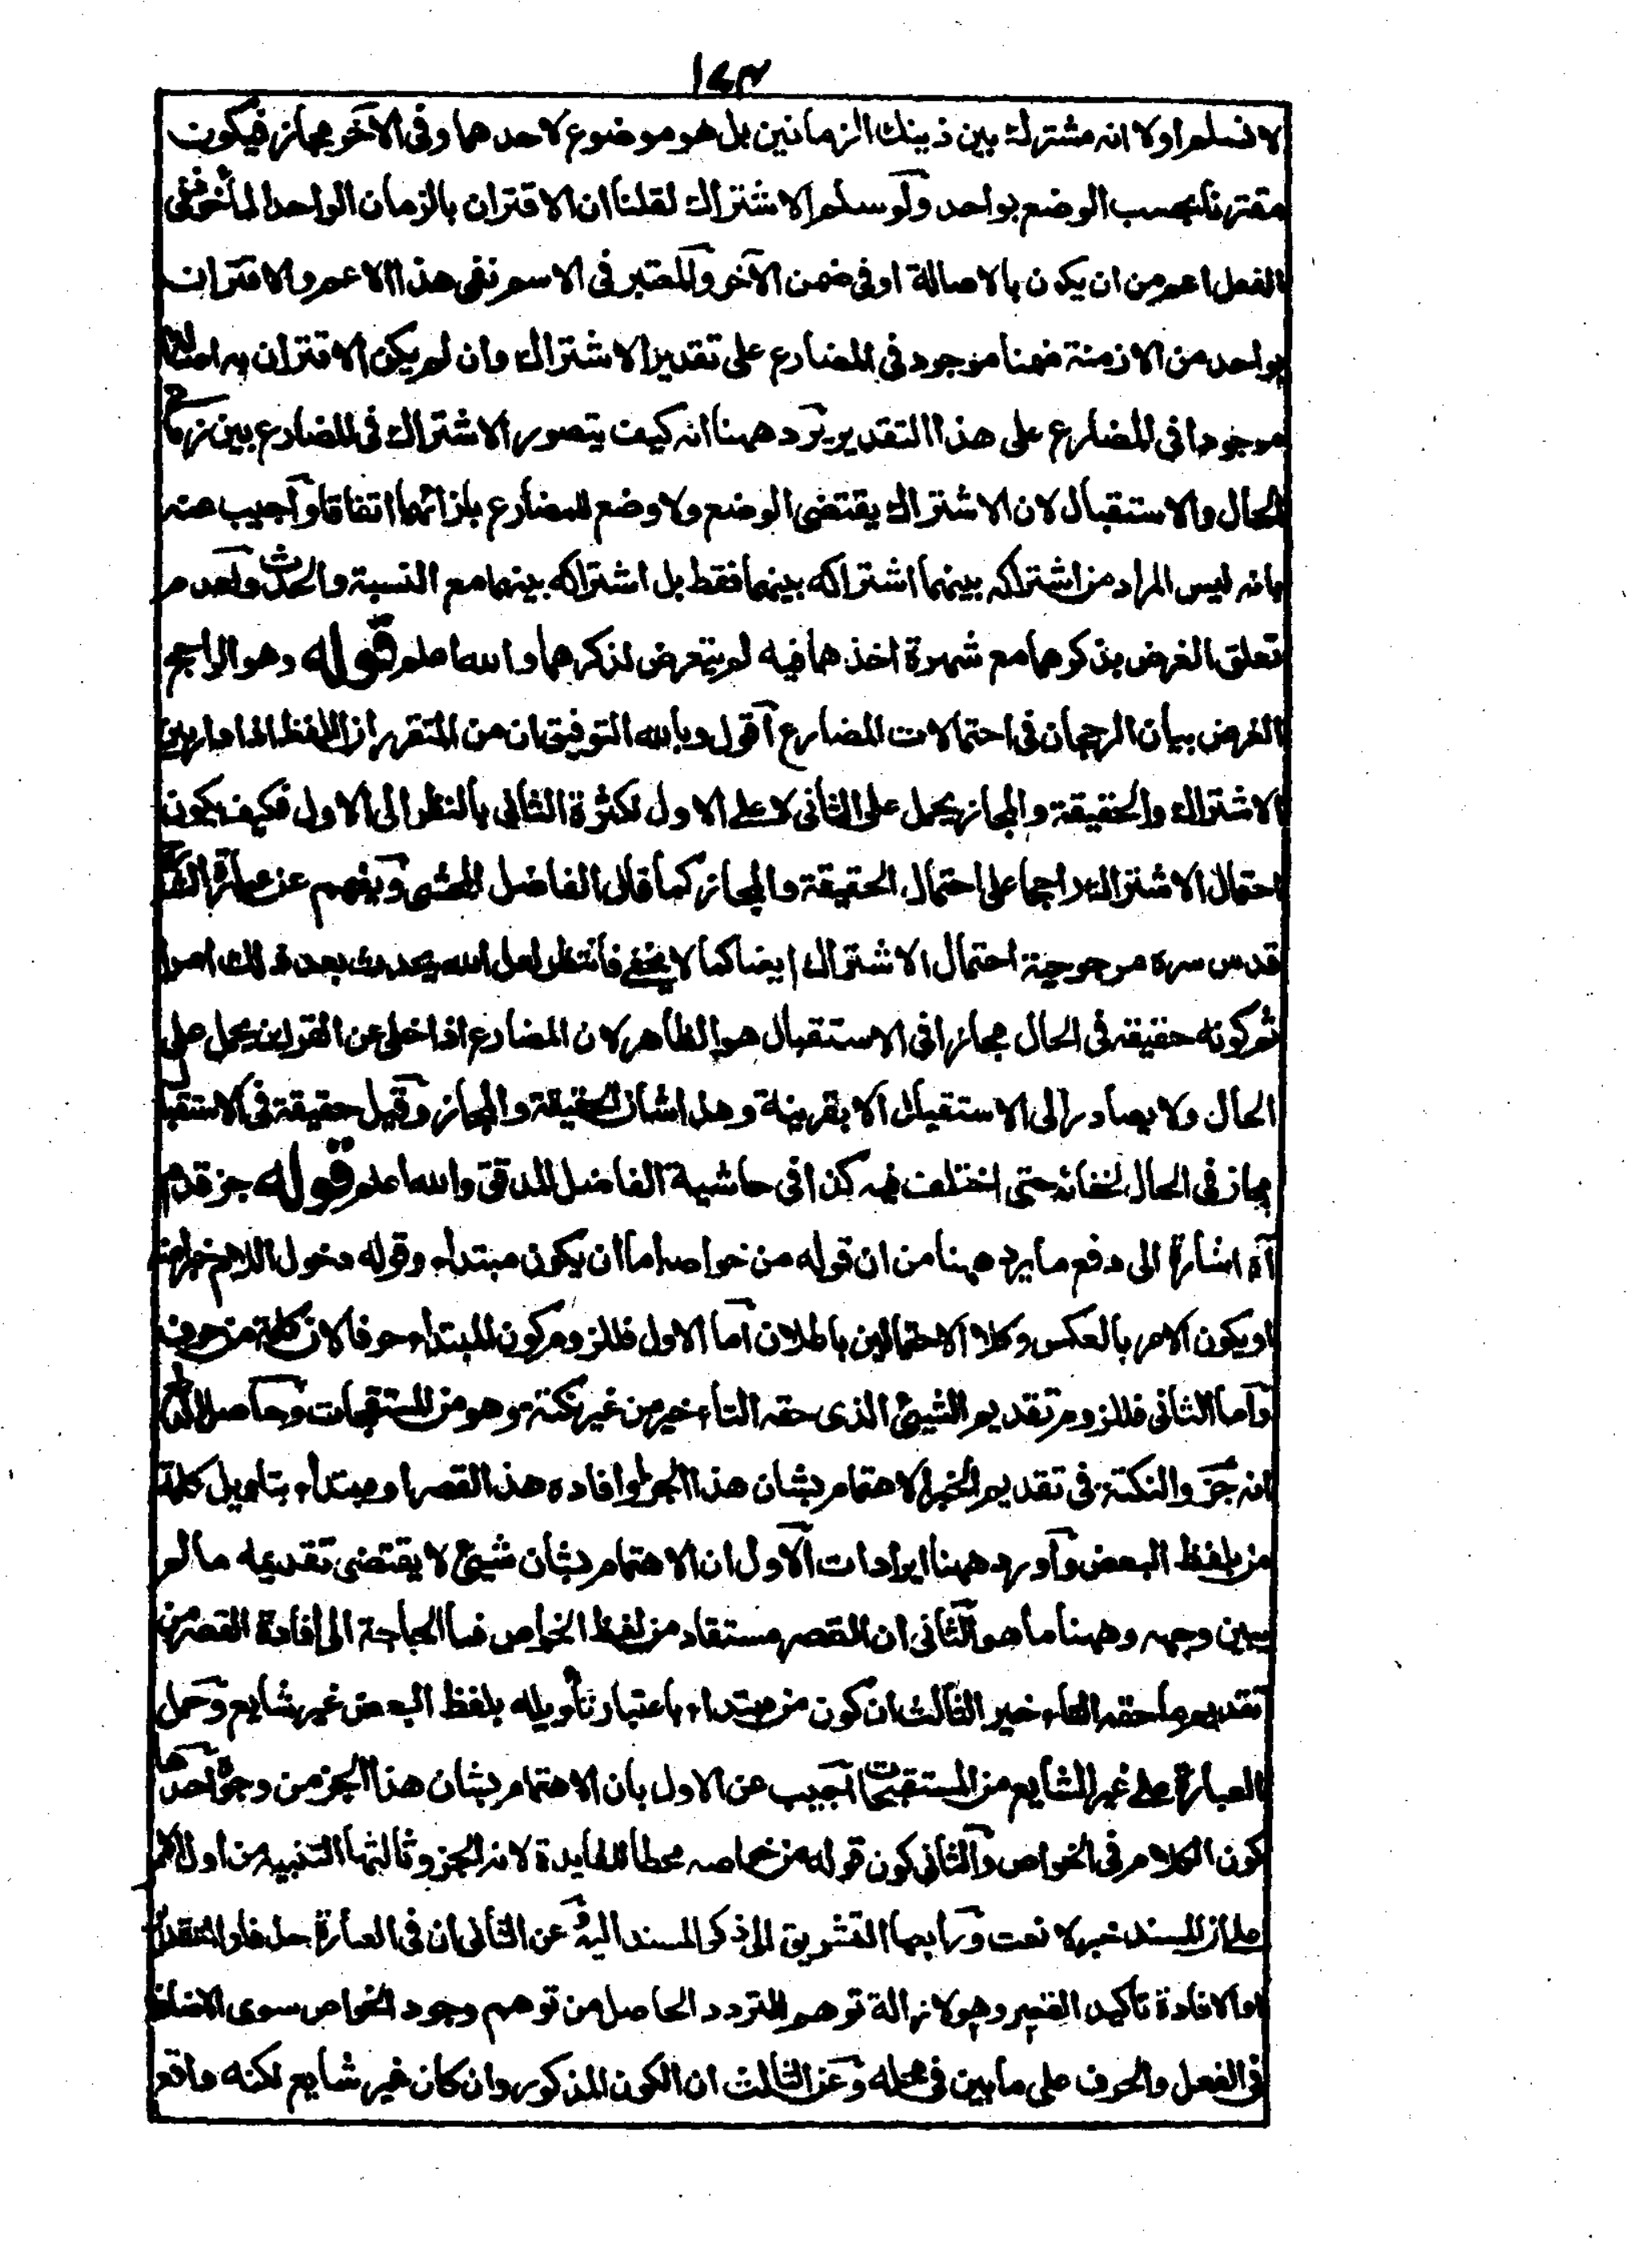 ١٤٣
لا نسلم اولا انه مشترك بين ذينك الزمانين بل هو موضوع لاحدهما وفى الآخر مجاز فيكون
مقترنا بحسب الوضع بواحد ولو سلم الاشتراك لقلنا ان الاقتران بالزمان الواحد المأخوذ فى
الفعل اعم من ان يكون بالاصالة او فى ضمن الآخر والمعتبر فى الاسم نفى هذا الاعم والاقتران
بواحد من الازمنة ضمنا موجود فى المضارع على تقدير الاشتراك وان لم يكن الاقتران به اصالة
موجودا فى المضارع على هذا التقدير يرد ههنا انه كيف يتصور الاشتراك فى المضارع بين زمانى
الحال والاستقبال لان الاشتراك يقتضى الوضع ولا وضع للمضارع بازائهما اتفاقا واجيب عنه
بانه ليس المراد من اشتراكه بينهما اشتراكه بينهما فقط بل اشتراكه بينهما مع النسبة والحدث ولعدم
تعلق الغرض بذكرهما مع شهرة اخذهما فيه لم يتعرض لذكرهما والله اعلم قوله وهو الراجح
الغرض بيان الرجحان فى احتمالات المضارع اقول وبالله التوفيق ان من المتقرر ان اللفظ اذا دار بين
الاشتراك والحقيقة والمجاز يحمل على الثانى لا على الاول لكثرة الثانى بالنظر الى الاول فكيف يكون
احتمال الاشتراك راجحا على احتمال الحقيقة والمجاز كما قال الفاضل المحشى ويفهم عن عبارة
قدس سره مرجوحية احتمال الاشتراك ايضا كما لا يخفى فانتظر لعل الله يحدث بعد ذلك امرا
ثم كونه حقيقة فى الحال مجازا فى الاستقبال هو الظاهر لان المضارع اذا خلى عن القرائن يحمل على
الحال ولا يصار الى الاستقبال الا بقرينة وهذا شان الحقيقة والمجاز وقيل حقيقة فى الاستقبال
مجاز فى الحال لخفائه حتى اختلف فيه كذا فى حاشية الفاضل المدقق والله اعلم قوله جز قدم
آه اشارة الى دفع ما يرد ههنا من ان قوله من خواصه اما ان يكون مبتداء وقوله دخول اللام خبرا منه
او يكون الامر بالعكس وكلا الاحتمالين باطلان اما الاول فللزوم كون المبتداء حرفا لان كلمة من حرف
واما الثانى فللزوم تقديم الشيئ الذى حقه التاءخير من غير نكتة وهو من المستقبحات وحاصل الدفع
انه خبر والنكتة فى تقديم الخبر الاهتمام بشان هذا الجز او افاده هذ القصر او مبتداء بتاويل كلمة
من بلفظ البعض واورد ههنا ايرادات الاول ان الاهتمام بشان شيئ لا يقتضى تقديمه ما لم
يبين وجهه وههنا ما هو الثانى ان القصر مستفاد من لفظ الخواص فما الحاجة الى افادة القصر من
تقديم ما حقه التاءخير الثالث ان كون من مبتداء باعتبار تأويله بلفظ البعض غير شايع وحمل
العبارة على غير الشايع من المستقبحات اجيب عن الاول بان الاهتمام بشان هذا الجز من وجوه احدها
كون الكلام فى الخواص والثانى كون قوله من خواصه محطا للفايدة لانه الجز وثالثها التنبيه من اول الامر
على ان المسند خبر لا نعت ورابعها التشويق الى ذكر المسند اليه وعن الثانى ان فى العبارة حذفا والتقدير
اما لافادة تاكيد القصر وهو لازالة توهم المتردد الحاصل من توهم وجود الخواص سوى الاضافة
فى الفعل والحرف على ما بين فى محله وعن الثالث ان الكون المذكور وان كان غير شايع لكنه واقع